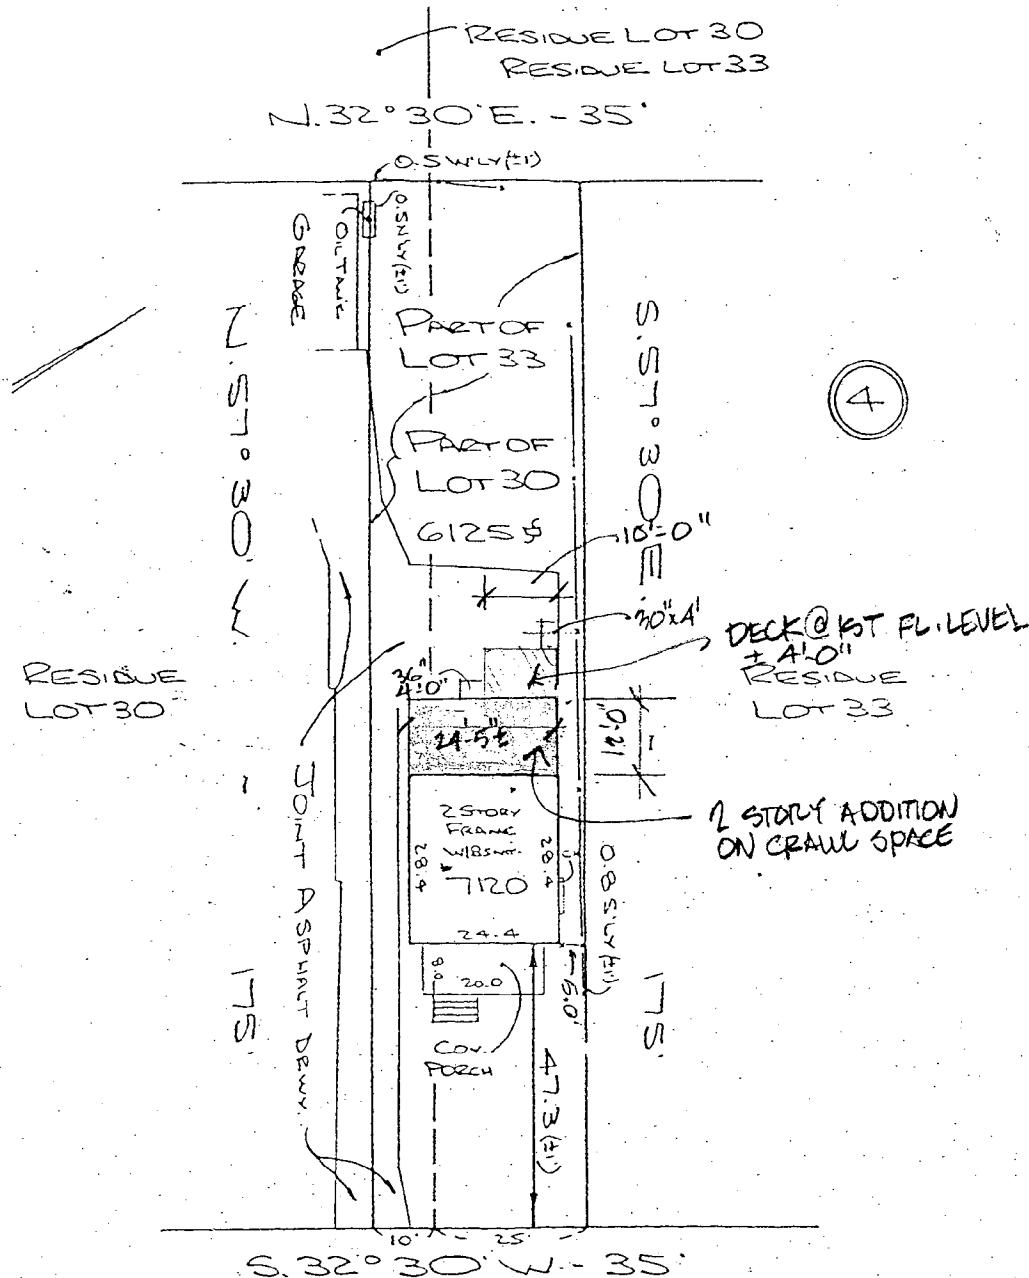 RESIDUE LOT 30
RESIDUE LOT 33
N.32°30'E. - 35'
0.5 W'LY(±1')
0.5 N'LY(±1')
OIL TANK
GARAGE
PART OF
LOT 33
PART OF
LOT 30
6125
10'-0"
N.57°30'W. - 175'
S.57°30'E
175'
4
30"x4'
DECK @ 1ST FL. LEVEL
± 4'-0"
RESIDUE
LOT 33
RESIDUE
LOT 30
36"
4'-0"
24'-5"±
12'-0"
2 STORY ADDITION
ON CRAWL SPACE
2 STORY
FRAME
W/BSMT.
7120
28.4
28.4
24.4
0.8 S'LY(±1')
8.0
20.0
6.0'
COV.
PORCH
47.3 (±1')
JOINT ASPHALT DRWY.
10'
25'
S.32°30'W. - 35'